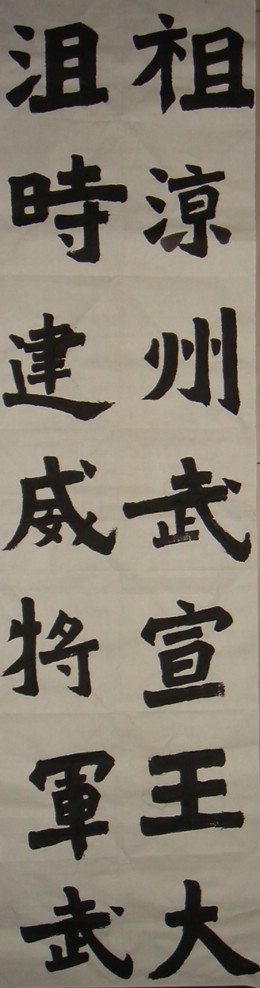 祖涼州武宣王大
沮時建威將軍武